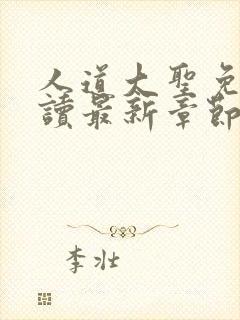 人道大聖免
讀最新章節
李壯